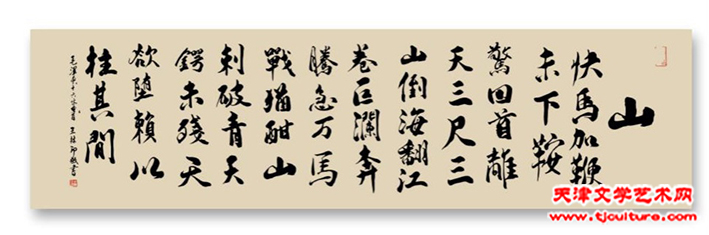 山
快馬加鞭
未下鞍
驚回首離
天三尺三
山倒海翻江
卷巨瀾奔
騰急万馬
戰猶酣山
刺破青天
鍔未殘天
欲墮賴以
柱其間
毛澤東十六字令
天津文学艺术网
www.tjculture.com